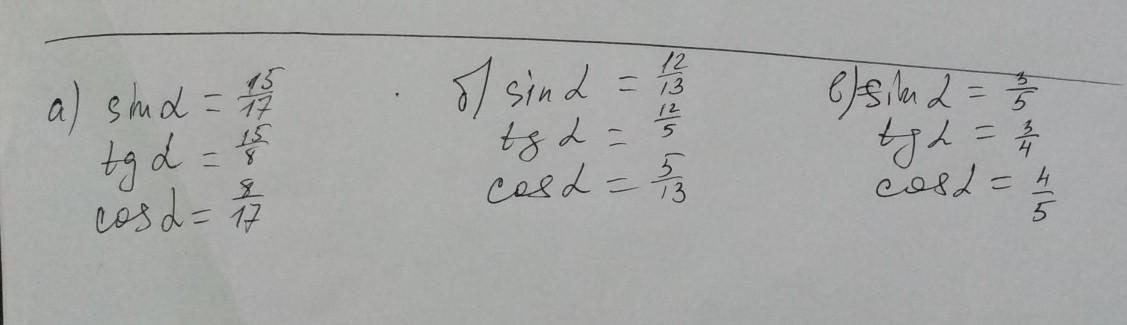 а) sin α = 15/17
tg α = 15/8
cos α = 8/17
б) sin α = 12/13
tg α = 12/5
cos α = 5/13
в) sin α = 3/5
tg α = 3/4
cos α = 4/5